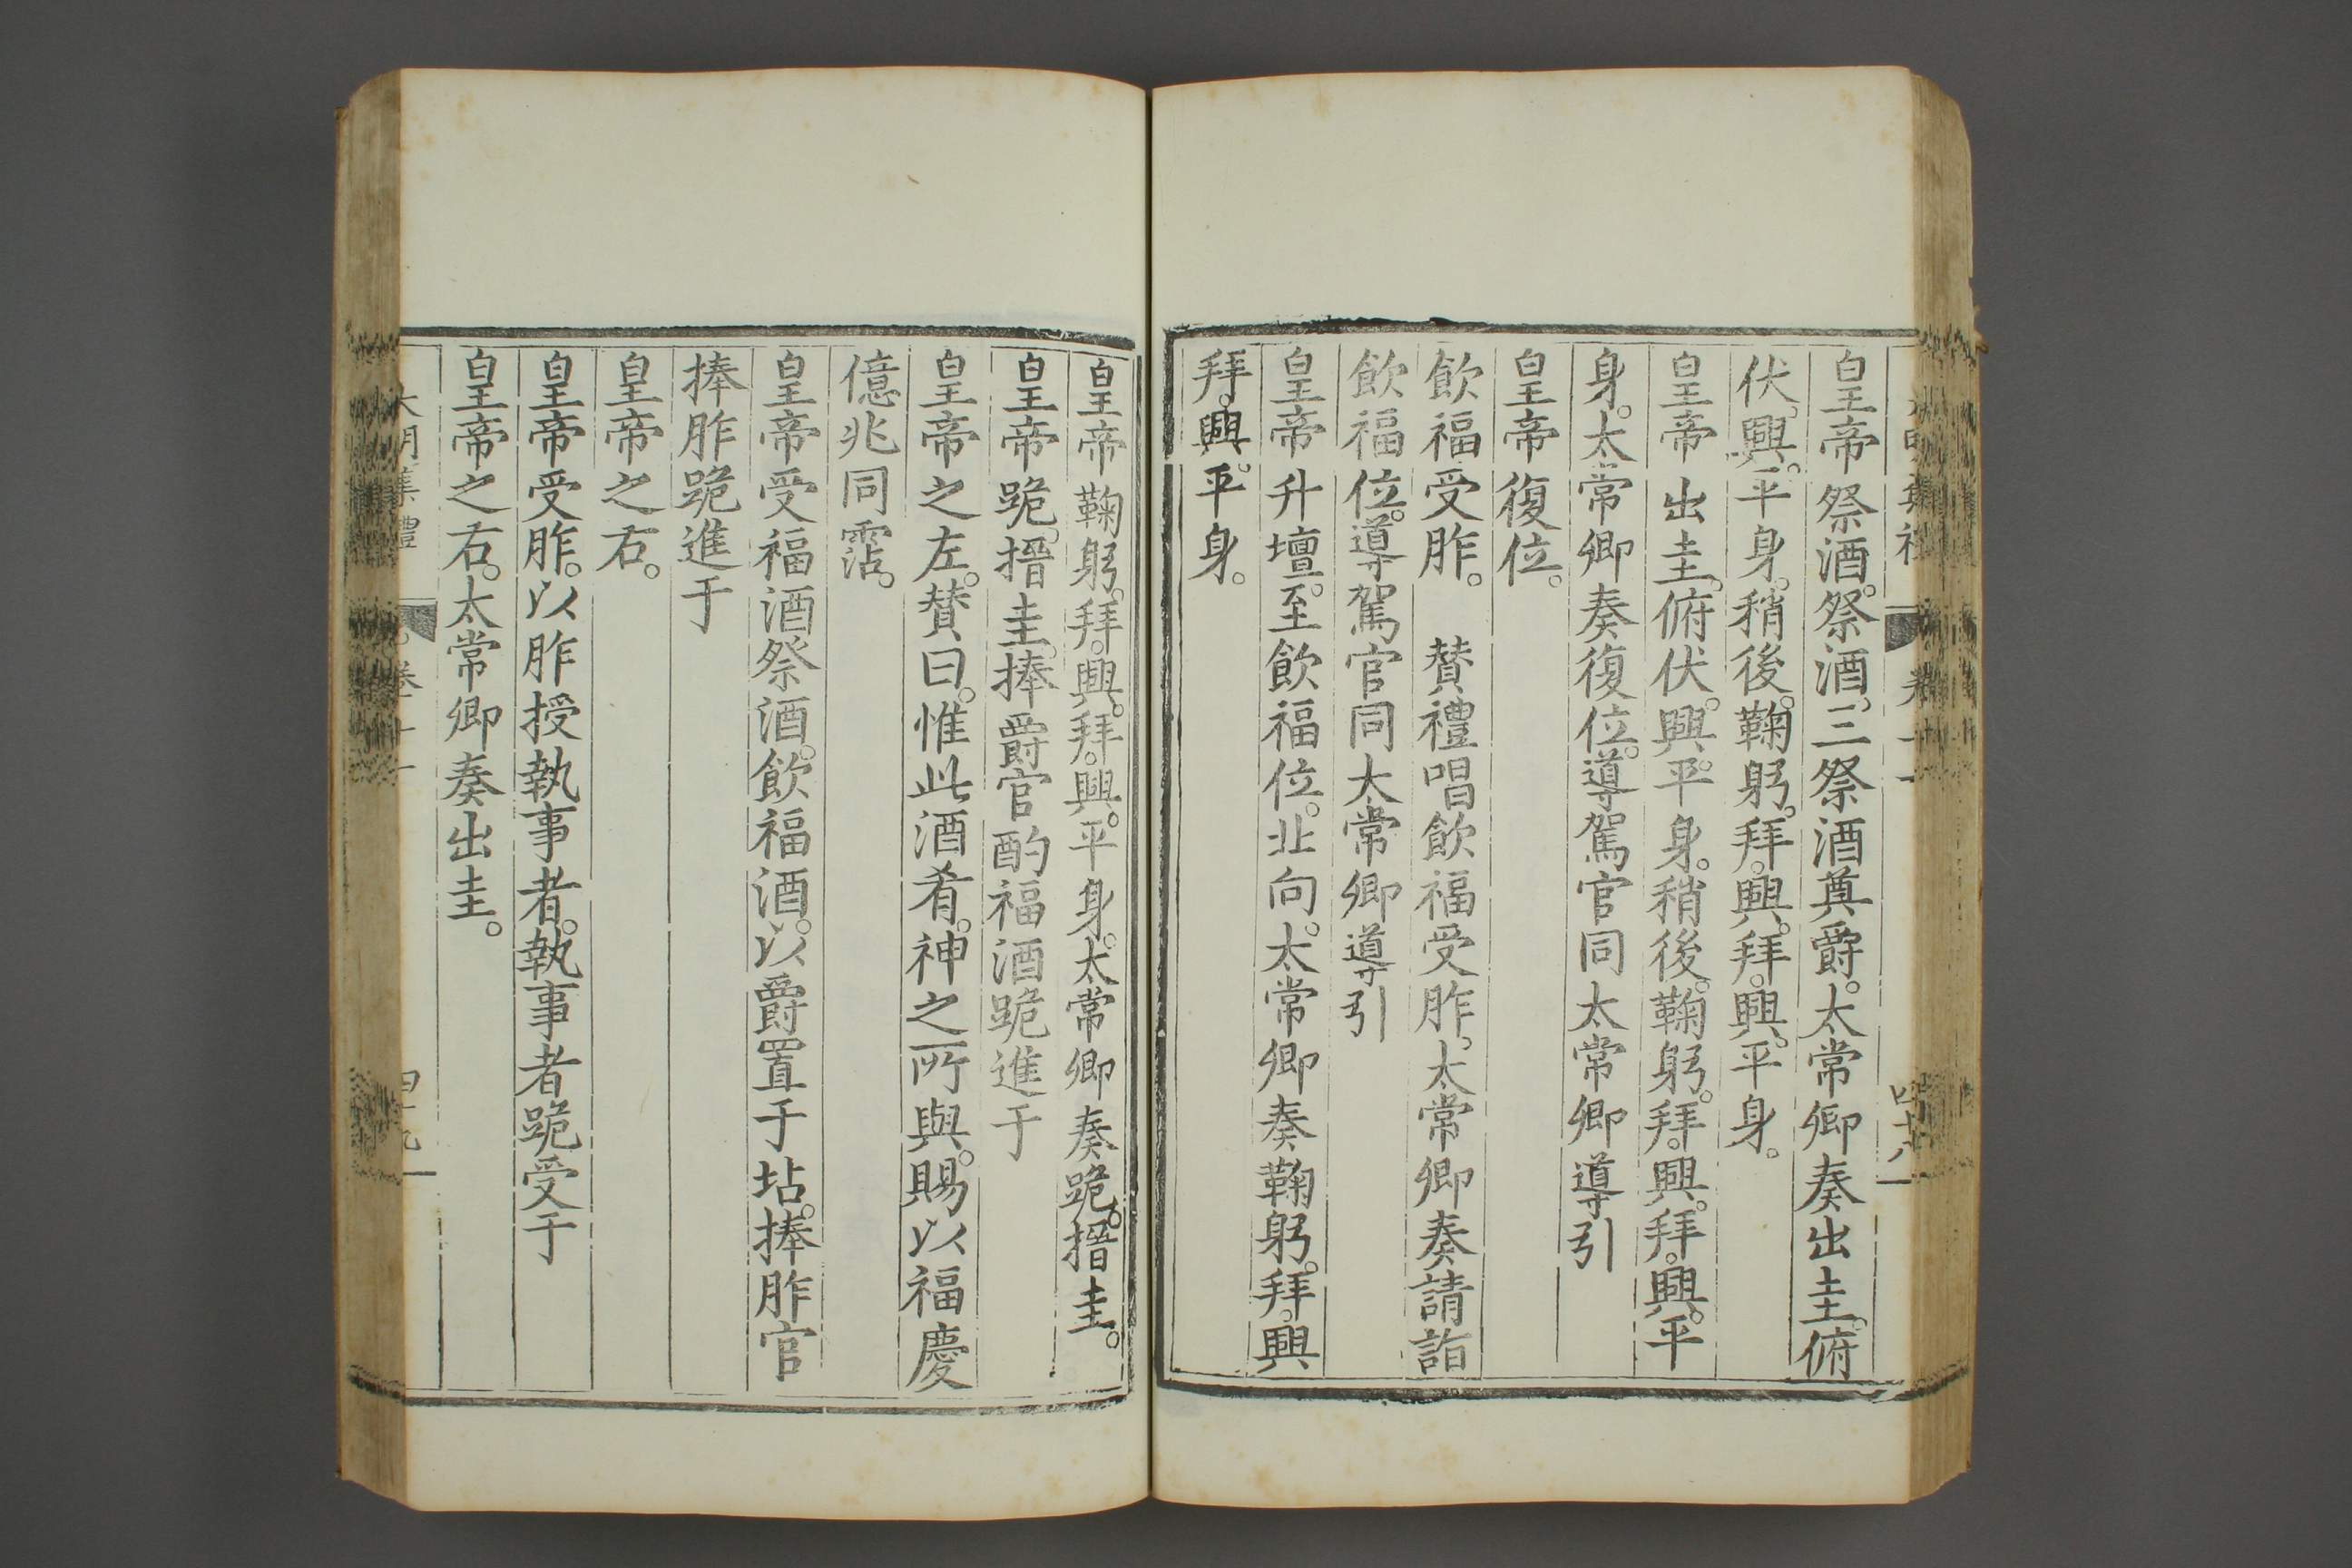 皇帝祭酒。祭酒。三祭酒奠爵。太常卿奏出圭。俯
伏。興。平身。稍後。鞠躬。拜。興。拜。興。平身。
皇帝出圭。俯伏。興。平身。稍後。鞠躬。拜。興。拜。興。平
身。太常卿奏復位。導駕官同太常卿導引
皇帝復位。
飲福受胙。　贊禮唱飲福受胙。太常卿奏請詣
飲福位。導駕官同太常卿導引
皇帝升壇。至飲福位。北向。太常卿奏鞠躬。拜。興
拜。興。平身。
皇帝鞠躬。拜。興。拜。興。平身。太常卿奏跪。搢圭。
皇帝跪。搢圭。捧爵官酌福酒跪進于
皇帝之左。贊曰。惟此酒肴。神之所與。賜以福慶
億兆同霑。
皇帝受福酒祭酒。飲福酒。以爵置于坫。捧胙官
捧胙跪進于
皇帝之右。
皇帝受胙。以胙授執事者。執事者跪受于
皇帝之右。太常卿奏出圭。
大明集禮
卷十一